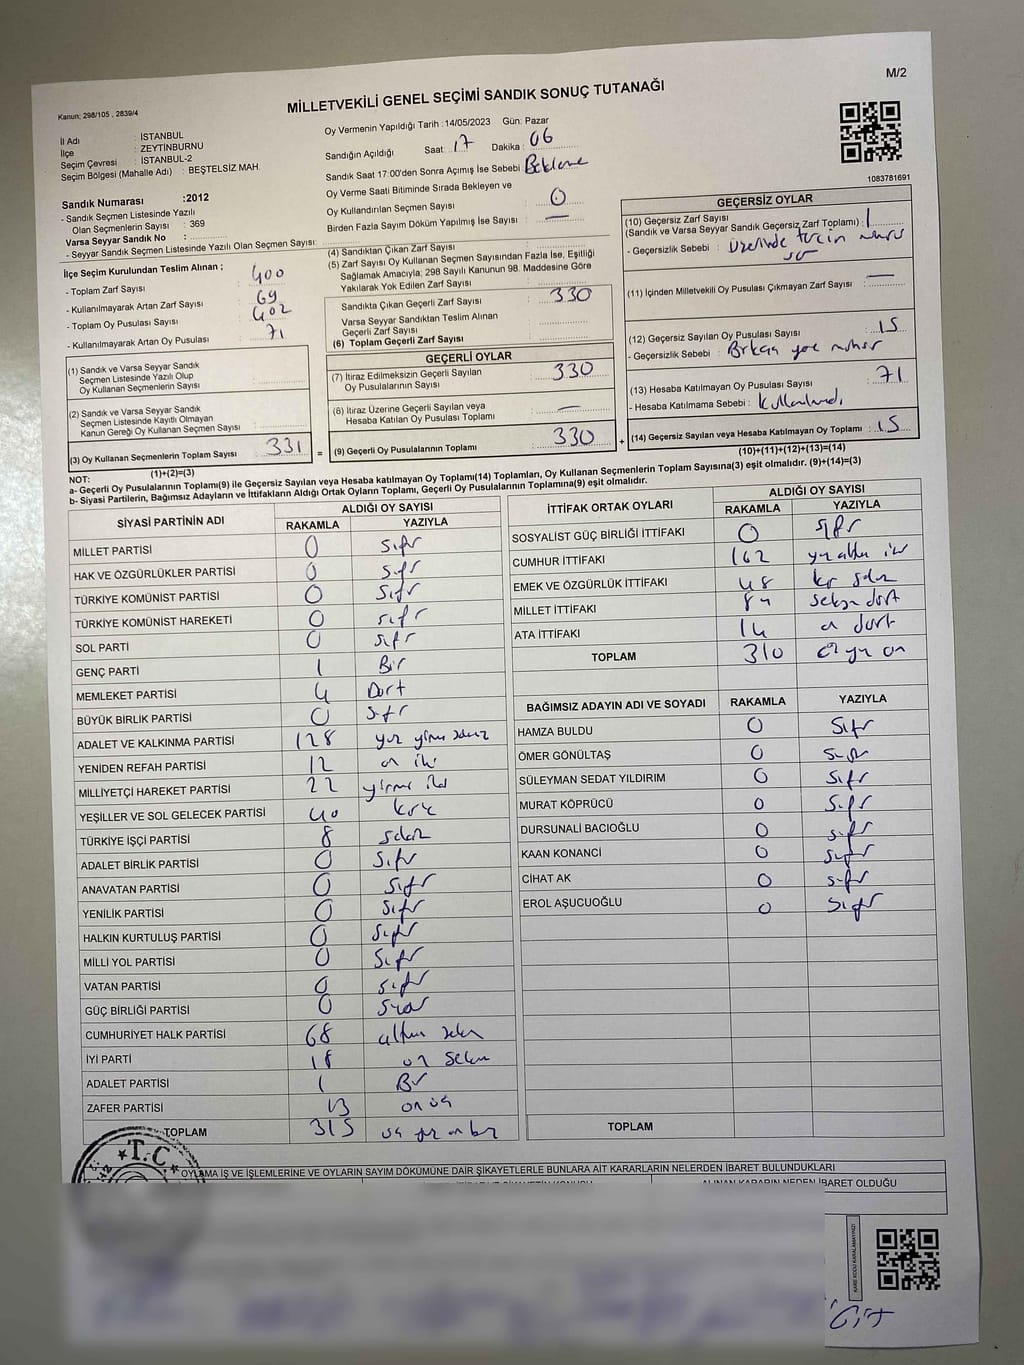 M/2
Kanun; 298/105 , 2839/4
MİLLETVEKİLİ GENEL SEÇİMİ SANDIK SONUÇ TUTANAĞI
İl Adı : İSTANBUL
İlçe : ZEYTİNBURNU
Seçim Çevresi : İSTANBUL-2
Seçim Bölgesi (Mahalle Adı) : BEŞTELSİZ MAH.
Sandık Numarası :2012
- Sandık Seçmen Listesinde Yazılı
Olan Seçmenlerin Sayısı : 369
Varsa Seyyar Sandık No :
- Seyyar Sandık Seçmen Listesinde Yazılı Olan Seçmen Sayısı:
Oy Vermenin Yapıldığı Tarih :14/05/2023 Gün: Pazar
Sandığın Açıldığı Saat : 17 Dakika : 06
Sandık Saat 17:00'den Sonra Açımış İse Sebebi : Bekleme
Oy Verme Saati Bitiminde Sırada Bekleyen ve
Oy Kullandırılan Seçmen Sayısı : 0
Birden Fazla Sayım Döküm Yapılmış İse Sayısı : —
1083781691
İlçe Seçim Kurulundan Teslim Alınan ;
- Toplam Zarf Sayısı : 400
- Kullanılmayarak Artan Zarf Sayısı : 69
- Toplam Oy Pusulası Sayısı : 402
- Kullanılmayarak Artan Oy Pusulası : 71
(1) Sandık ve Varsa Seyyar Sandık
Seçmen Listesinde Yazılı Olup
Oy Kullanan Seçmenlerin Sayısı :
(2) Sandık ve Varsa Seyyar Sandık
Seçmen Listesinde Kayıtlı Olmayan
Kanun Gereği Oy Kullanan Seçmen Sayısı :
(3) Oy Kullanan Seçmenlerin Toplam Sayısı : 331
(1)+(2)=(3)
(4) Sandıktan Çıkan Zarf Sayısı :
(5) Zarf Sayısı Oy Kullanan Seçmen Sayısından Fazla İse, Eşitliği
Sağlamak Amacıyla; 298 Sayılı Kanunun 98. Maddesine Göre
Yakılarak Yok Edilen Zarf Sayısı :
Sandıkta Çıkan Geçerli Zarf Sayısı : 330
Varsa Seyyar Sandıktan Teslim Alınan
Geçerli Zarf Sayısı :
(6) Toplam Geçerli Zarf Sayısı :
GEÇERLİ OYLAR
(7) İtiraz Edilmeksizin Geçerli Sayılan
Oy Pusulalarının Sayısı : 330
(8) İtiraz Üzerine Geçerli Sayılan veya
Hesaba Katılan Oy Pusulası Toplamı : —
(9) Geçerli Oy Pusulalarının Toplamı : 330
GEÇERSİZ OYLAR
(10) Geçersiz Zarf Sayısı
(Sandık ve Varsa Seyyar Sandık Geçersiz Zarf Toplamı) : 1
- Geçersizlik Sebebi : Üzerinde
(11) İçinden Milletvekili Oy Pusulası Çıkmayan Zarf Sayısı : —
(12) Geçersiz Sayılan Oy Pusulası Sayısı : 15
- Geçersizlik Sebebi : Birkaç yere mühür
(13) Hesaba Katılmayan Oy Pusulası Sayısı : 71
- Hesaba Katılmama Sebebi : Kullanılmadı
(14) Geçersiz Sayılan veya Hesaba Katılmayan Oy Toplamı : 15
(10)+(11)+(12)+(13)=(14)
NOT:
a- Geçerli Oy Pusulası Toplamı(9) ile Geçersiz Sayılan veya Hesaba katılmayan Oy Toplamı(14) Toplamları, Oy Kullanan Seçmenlerin Toplam Sayısına(3) eşit olmalıdır. (9)+(14)=(3)
b- Siyasi Partilerin, Bağımsız Adayların ve İttifakların Aldığı Ortak Oyların Toplamı, Geçerli Oy Pusulalarının Toplamına(9) eşit olmalıdır.
SİYASİ PARTİNİN ADI ALDIĞI OY SAYISI
RAKAMLA YAZIYLA
MİLLET PARTİSİ 0 sıfır
HAK VE ÖZGÜRLÜKLER PARTİSİ 0 sıfır
TÜRKİYE KOMÜNİST PARTİSİ 0 sıfır
TÜRKİYE KOMÜNİST HAREKETİ 0 sıfır
SOL PARTİ 0 sıfır
GENÇ PARTİ 1 Bir
MEMLEKET PARTİSİ 4 Dört
BÜYÜK BİRLİK PARTİSİ 0 sıfır
ADALET VE KALKINMA PARTİSİ 128 yüz yirmi sekiz
YENİDEN REFAH PARTİSİ 12 on iki
MİLLİYETÇİ HAREKET PARTİSİ 22 yirmi iki
YEŞİLLER VE SOL GELECEK PARTİSİ 40 kırk
TÜRKİYE İŞÇİ PARTİSİ 8 sekiz
ADALET BİRLİK PARTİSİ 0 sıfır
ANAVATAN PARTİSİ 0 sıfır
YENİLİK PARTİSİ 0 sıfır
HALKIN KURTULUŞ PARTİSİ 0 sıfır
MİLLİ YOL PARTİSİ 0 sıfır
VATAN PARTİSİ 0 sıfır
GÜÇ BİRLİĞİ PARTİSİ 0 sıfır
CUMHURİYET HALK PARTİSİ 68 altmış sekiz
İYİ PARTİ 18 on sekiz
ADALET PARTİSİ 1 Bir
ZAFER PARTİSİ 13 on üç
TOPLAM 315 üç yüz on beş
İTTİFAK ORTAK OYLARI ALDIĞI OY SAYISI
RAKAMLA YAZIYLA
SOSYALİST GÜÇ BİRLİĞİ İTTİFAKI 0 sıfır
CUMHUR İTTİFAKI 162 yüz altmış iki
EMEK VE ÖZGÜRLÜK İTTİFAKI 48 kırk sekiz
MİLLET İTTİFAKI 84 seksen dört
ATA İTTİFAKI 14 on dört
TOPLAM 310 üç yüz on
BAĞIMSIZ ADAYIN ADI VE SOYADI RAKAMLA YAZIYLA
HAMZA BULDU 0 sıfır
ÖMER GÖNÜLTAŞ 0 sıfır
SÜLEYMAN SEDAT YILDIRIM 0 sıfır
MURAT KÖPRÜCÜ 0 sıfır
DURSUNALİ BACIOĞLU 0 sıfır
KAAN KONANCİ 0 sıfır
CİHAT AK 0 sıfır
EROL AŞUCUOĞLU 0 sıfır
TOPLAM
T.C.
OYLAMA İŞ VE İŞLEMLERİNE VE OYLARIN SAYIM DÖKÜMÜNE DAİR ŞİKAYETLERLE BUNLARA AİT KARARLARIN NELERDEN İBARET BULUNDUKLARI
ALINAN KARARIN NEDEN İBARET OLDUĞU
KARE KODU KARALAMAYINIZ!